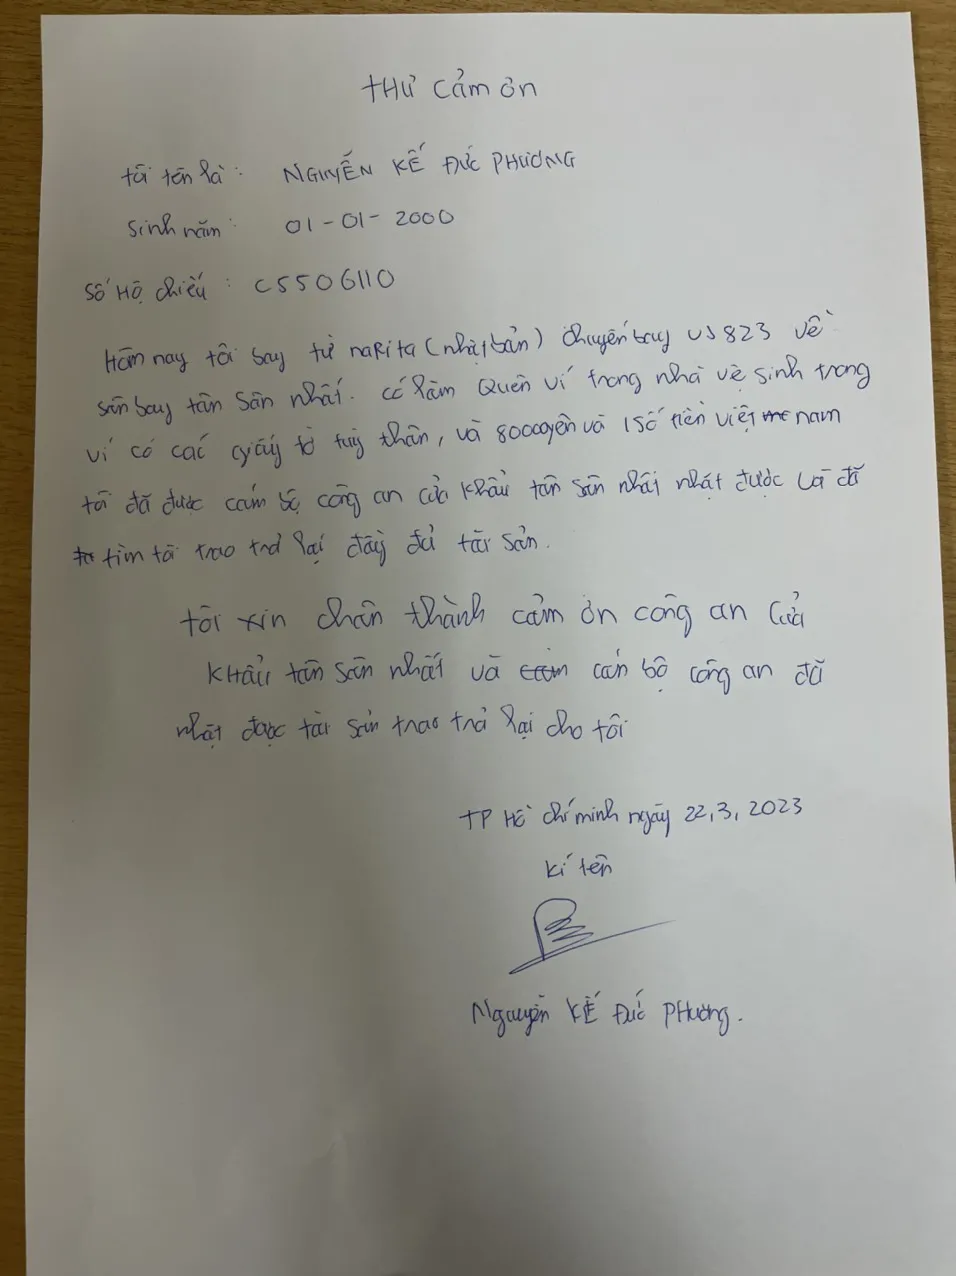 THƯ cảm ơn
tôi tên là: NGUYỄN KẾ ĐỨC PHƯƠNG
Sinh năm: 01-01-2000
Số Hộ chiếu: C5506110
Hôm nay tôi bay từ naRita (nhật bản) chuyến bay VJ823 về
sân bay tân sân nhất. có làm quên ví trong nhà vệ sinh trong
ví có các giấy tờ tuỳ thân, và 8000yên và 1 số tiền việt nam
tôi đã được cám bộ công an cửa khẩu tân sân nhất nhặt được và đã
tìm tôi trao trả lại đầy đủ tài sản.
tôi xin chân thành cảm ơn công an cửa
khẩu tân sân nhất và cán bộ công an đã
nhặt được tài sản trao trả lại cho tôi
TP Hồ chí minh ngày 22,3,2023
kí tên
Nguyễn KẾ Đức PHương.